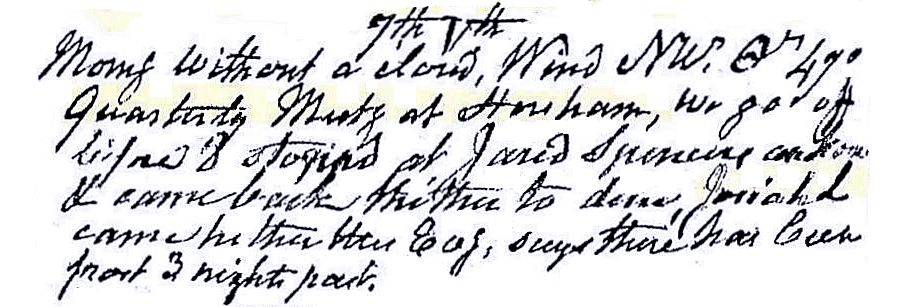 7th Vth
Morng without a cloud, Wind NW. Or 49°
Quarterly Meetg at Horsham, we go off
before 8 stopped at Jared Spencers and on
& came back thither to dine, Josiah L
came hither this Eveg, says there has been
frost 3 nights past.